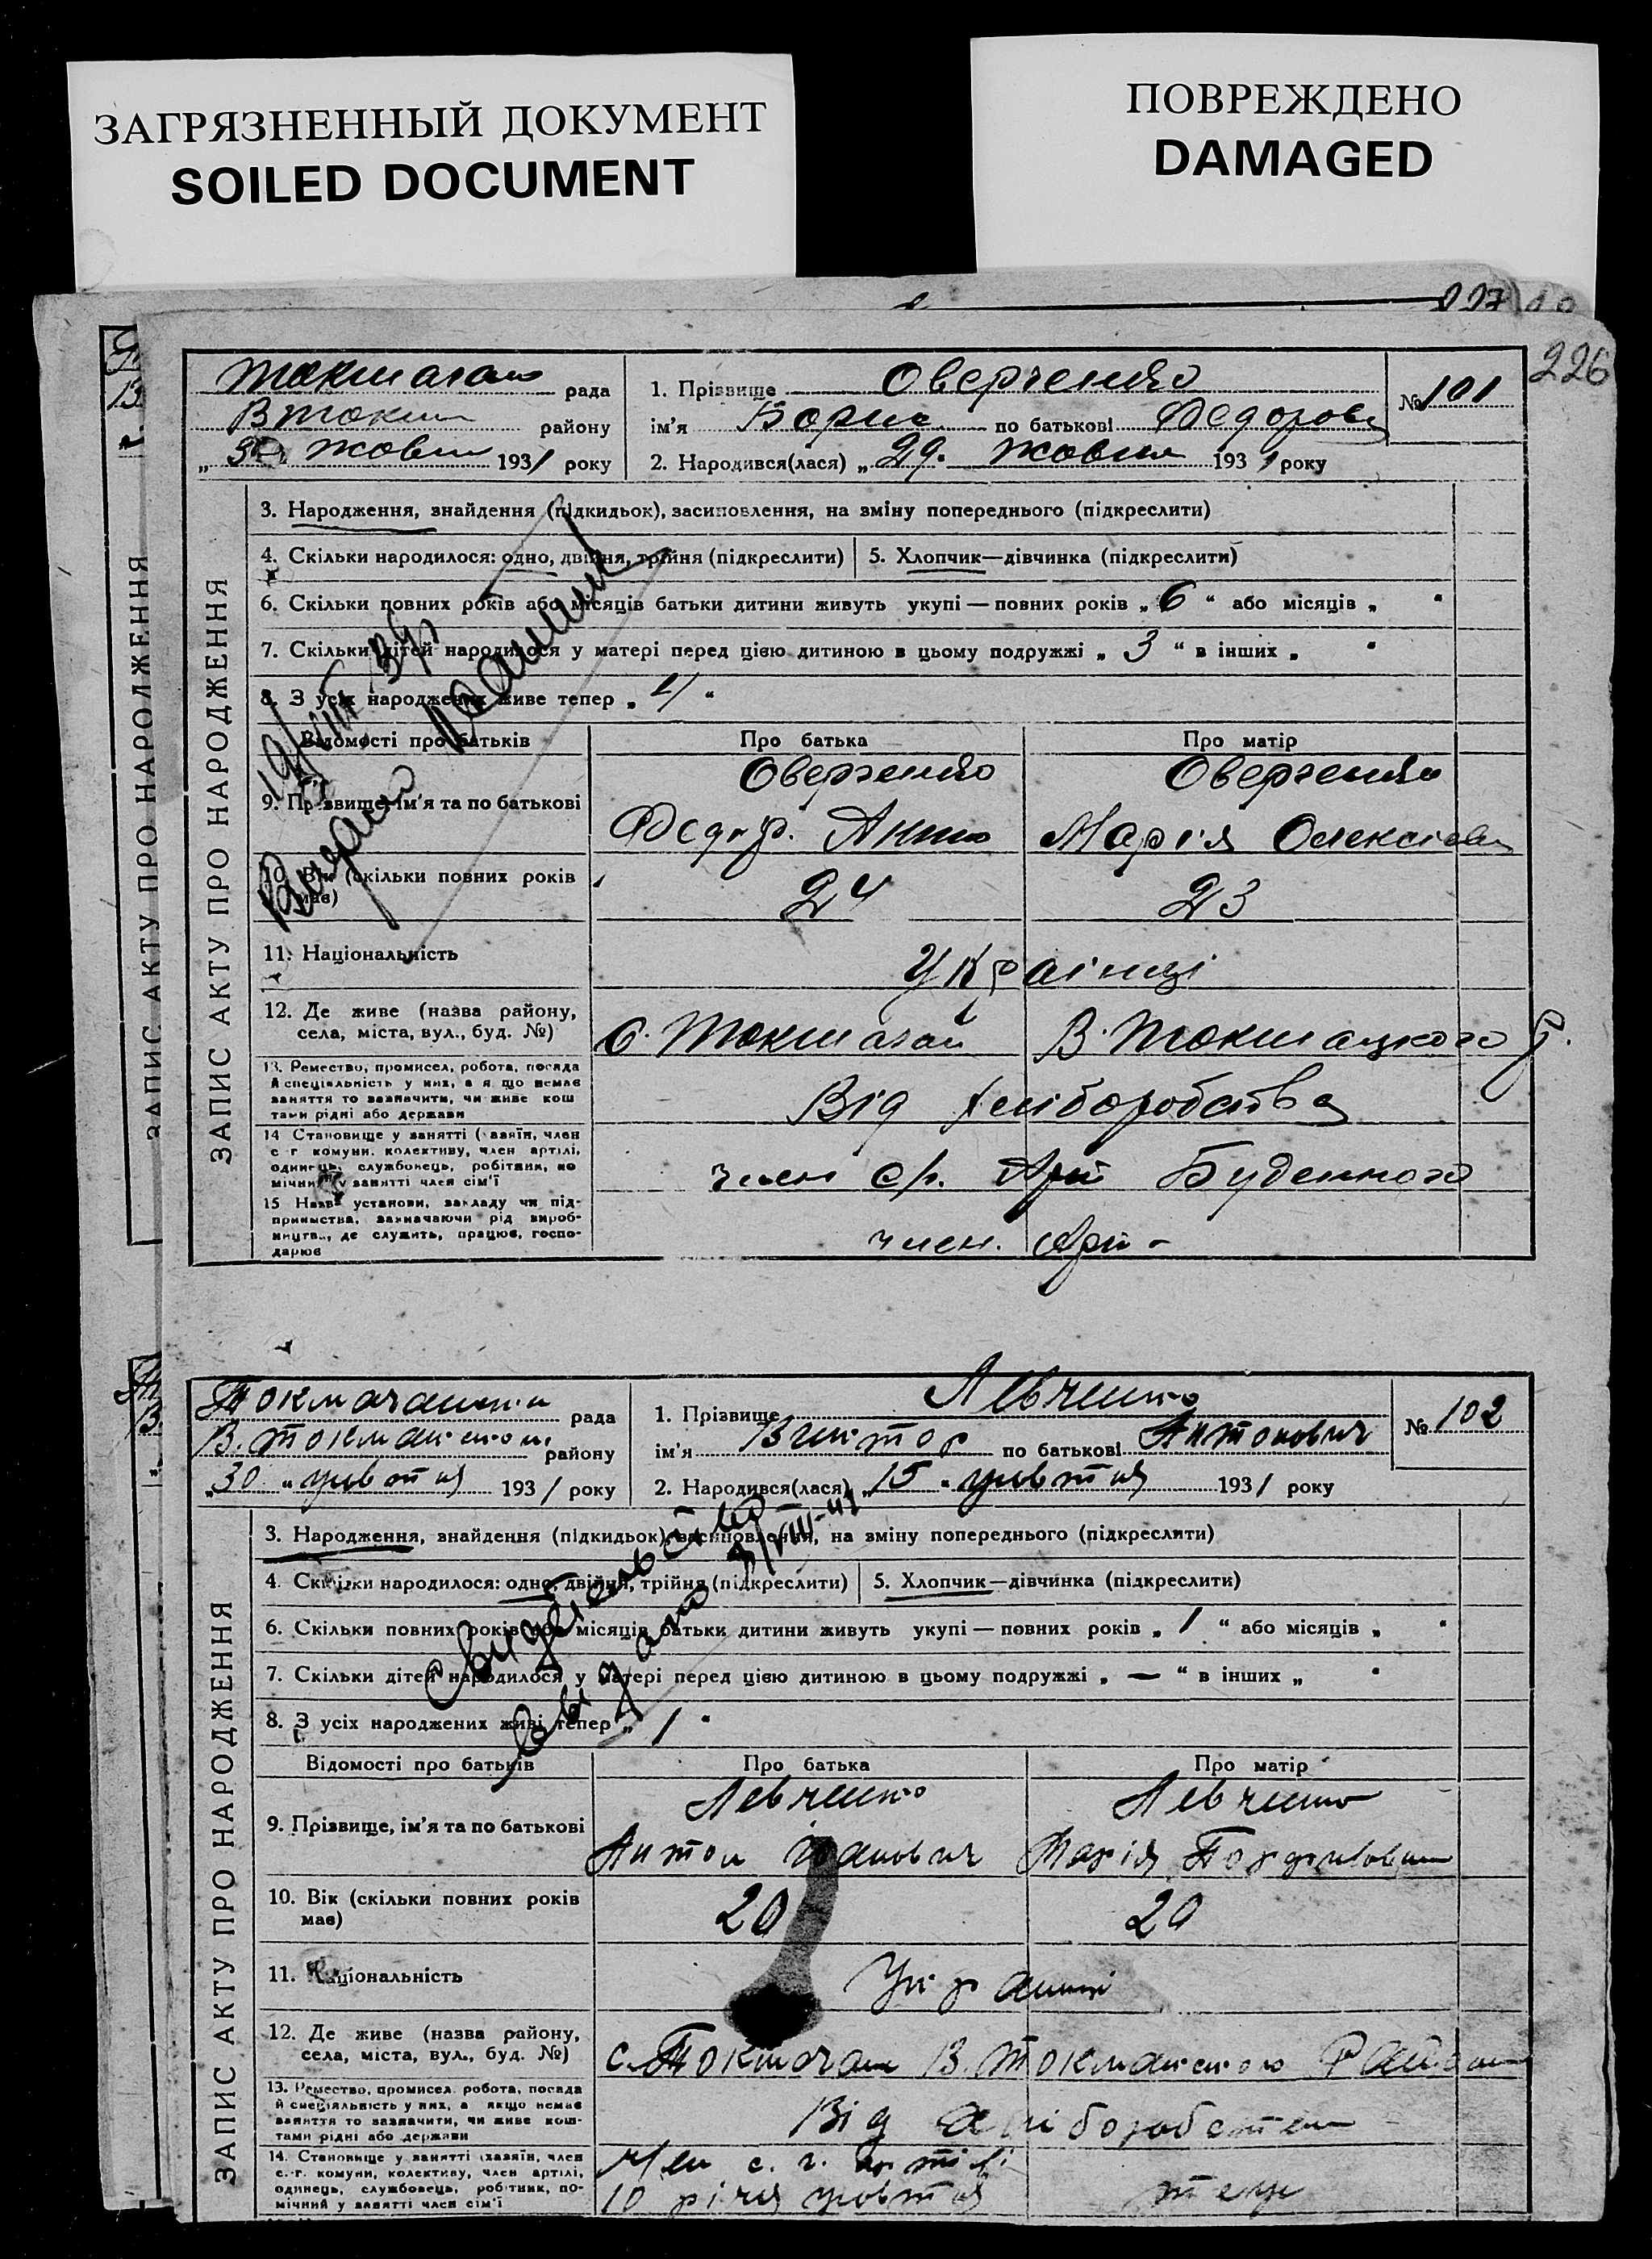 ЗАГРЯЗНЕННЫЙ ДОКУМЕНТ
SOILED DOCUMENT
ПОВРЕЖДЕНО
DAMAGED
226
рада
району
193 1 року
1. Прізвище Оверченко
ім'я Борис по батькові Федоров
2. Народився(лася) „ 29. жовтня 193 1 року
№ 101
ЗАПИС АКТУ ПРО НАРОДЖЕННЯ
ЗАПИС АКТУ ПРО НАРОДЖЕННЯ
3. Народження, знайдення (підкидьок), засиновлення, на зміну попереднього (підкреслити)
4. Скільки народилося: одно, двійня, трійня (підкреслити)
5. Хлопчик—дівчинка (підкреслити)
6. Скільки повних років або місяців батьки дитини живуть укупі — повних років „ 6 “ або місяців „ “
7. Скільки дітей народилося у матері перед цією дитиною в цьому подружжі „ 3 “ в інших „ “
8. З усіх народжених живе тепер „ 4 “
Відомості про батьків
Про батька
Про матір
9. Прізвище, ім'я та по батькові
Оверченко
Федор.
Оверченко
Марія Олексіевн
10. Вік (скільки повних років має)
24
23
11. Національність
Українці
12. Де живе (назва району,
села, міста, вул., буд. №)
13. Ремество, промисел, робота, посада
й спеціяльність у них, а якщо немає
заняття то зазначити, чи живе кош
тами рідні або держави
Від хліборобства
14 Становище у занятті (хазяїн, член
с г комуни, колективу, член артілі,
одинець, службовець, робітник, по
мічник у занятті член сім'ї
член Буденного
15 Назва установи, закладу чи під-
приємства, зазначаючи рід вироб-
ництва, де служить, працює, госпо-
дарює
член.
рада
В. району
„ 30 “ жовтня 193 1 року
1. Прізвище Левченко
ім'я Виктор по батькові Антонович
2. Народився(лася) „ 15 “ жовтня 193 1 року
№ 102
ЗАПИС АКТУ ПРО НАРОДЖЕННЯ
3. Народження, знайдення (підкидьок), засиновлення, на зміну попереднього (підкреслити)
4. Скільки народилося: одно, двійня, трійня (підкреслити)
5. Хлопчик—дівчинка (підкреслити)
6. Скільки повних років або місяців батьки дитини живуть укупі — повних років „ 1 “ або місяців „ “
7. Скільки дітей народилося у матері перед цією дитиною в цьому подружжі „ — “ в інших „ “
8. З усіх народжених живі тепер „ 1 “
Відомості про батьків
Про батька
Про матір
9. Прізвище, ім'я та по батькові
Левченко
Антон Іванович
Левченко
Марія
10. Вік (скільки повних років
має)
20
20
11. Національність
Українці
12. Де живе (назва району,
села, міста, вул., буд. №)
13. Ремество, промисел робота, посада
й спеціяльність у них, а якщо немає
заняття то зазначити, чи живе кош-
тами рідні або держави
Від хліборобства
14. Становище у занятті (хазяїн, член
с.-г. комуни, колективу, член артілі,
одинець, службовець, робітник, по-
мічний у занятті член сім'ї
член с. г. артілі
10 жовтня